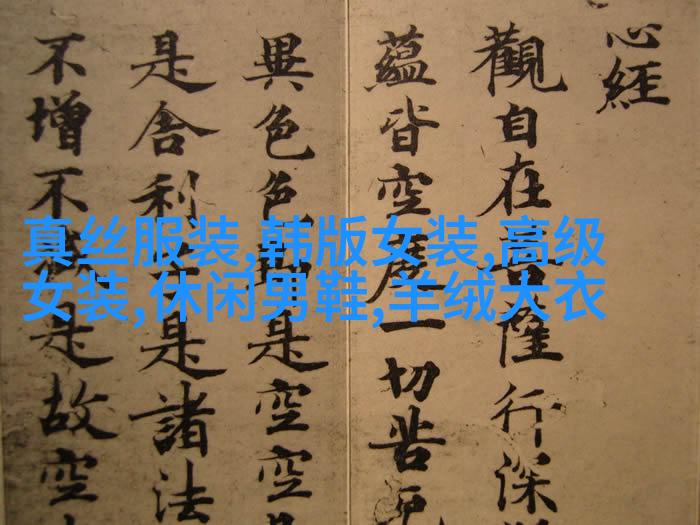 真丝服装,韩版女装,高级
女装,休闲男鞋,羊绒大衣
心經
觀自在菩薩行深
蘊皆空度一切苦厄
異色色即是空空
是舍利子是諸法
不增不減是故空